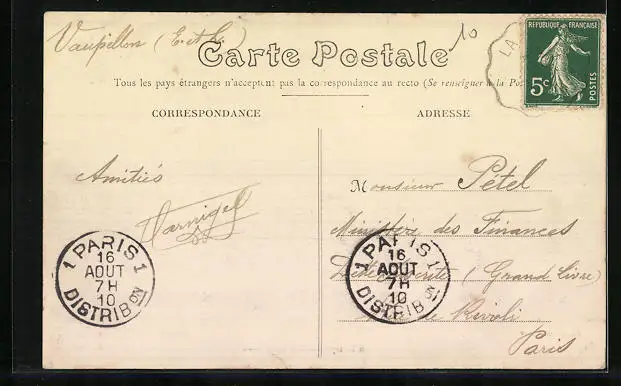 Vaupillon (E et L)
10
Carte Postale
Tous les pays étrangers n'acceptent pas la correspondance au recto (Se renseigner à la Pos
CORRESPONDANCE
ADRESSE
RÉPUBLIQUE FRANÇAISE
5c
POSTES
LA
Amitiés
Monsieur Pétel
Ministère des Finances
Dette Inscrite (Grand Livre)
de Rivoli
Paris
1 PARIS 1
16
AOUT
7H
10
DISTRIBON
1 PARIS 1
16
AOUT
7H
10
DISTRIBON